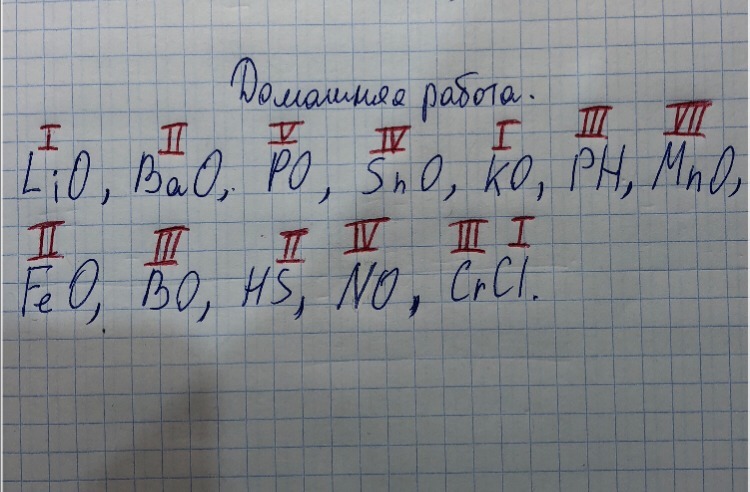 Домашняя работа.
I II V IV I III VII
LiO, BaO, PO, SnO, KO, PH, MnO,
II III II IV III I
FeO, BO, HS, NO, CrCl.